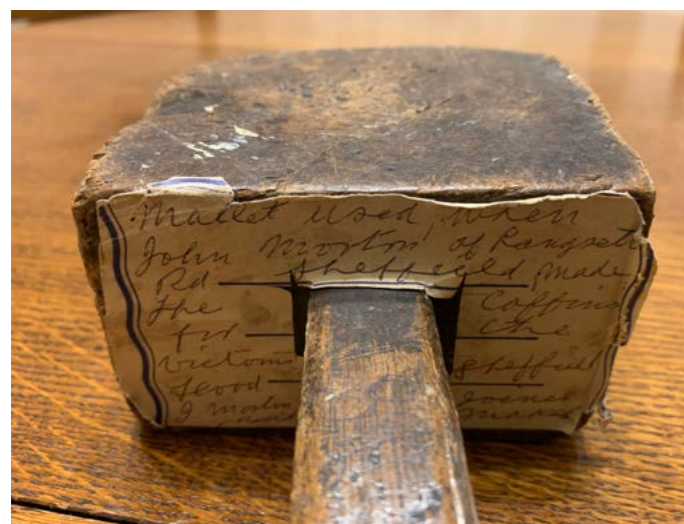 Mallet used when
John Morton of Langsett
Rd Sheffield made
the Coffins
for the
victoms Sheffield
flood
J Morton Joiner